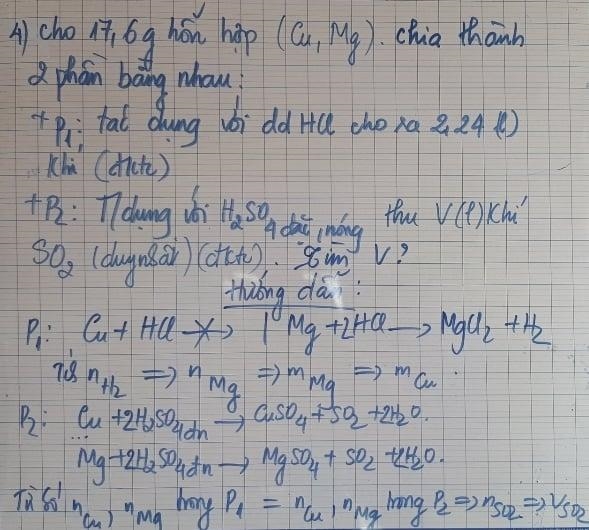 4) Cho 17,6g hỗn hợp (Cu, Mg). chia thành
2 phần bằng nhau:
+ P1: tác dụng với dd HCl cho ra 2,24 (l)
Khí (đktc)
+ P2: T/dụng với H2SO4 đặc, nóng thu V(l) Khí
SO2 (duy nhất) (đktc). Tìm V?
Hướng dẫn:
P1: Cu + HCl -x-> | Mg + 2HCl → MgCl2 + H2
Từ nH2 => nMg => mMg => mCu.
P2: Cu + 2H2SO4đn → CuSO4 + SO2 + 2H2O.
Mg + 2H2SO4đn → MgSO4 + SO2 + 2H2O.
Từ số nCu, nMg trong P1 = nCu, nMg trong P2 => nSO2 => VSO2